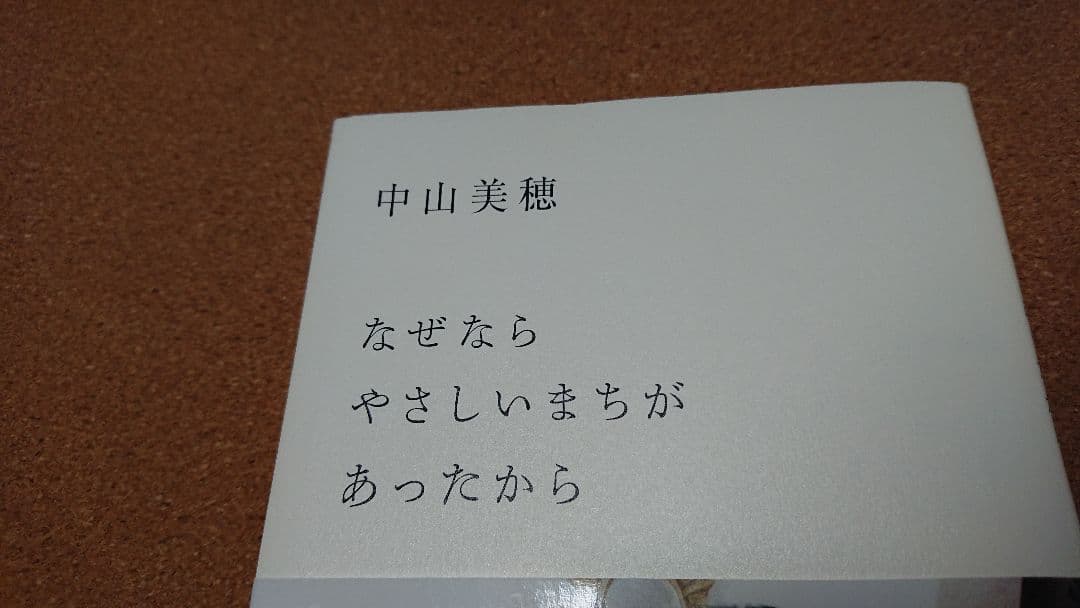 中山美穂
なぜなら
やさしいまちが
あったから